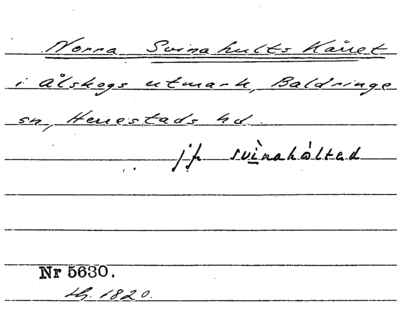 Norra Svinahults Kärret
i Ålskogs utmark, Baldringe
sn, Herrestads hd.
jf svinahåltad
Nr 5630.
1820.